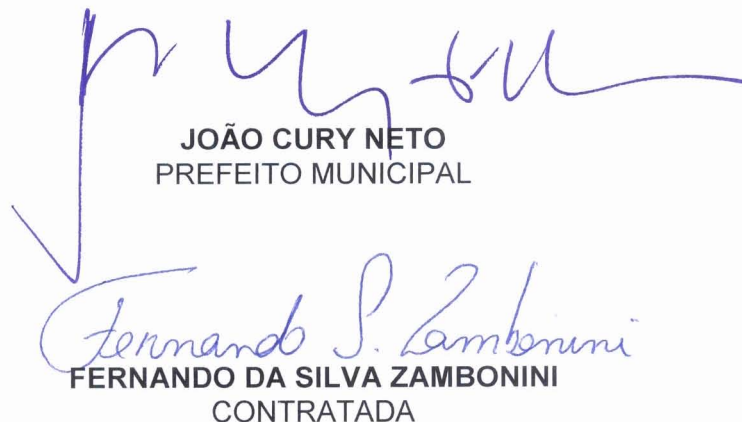 JOÃO CURY NETO
PREFEITO MUNICIPAL
Fernando S. Zambonini
FERNANDO DA SILVA ZAMBONINI
CONTRATADA